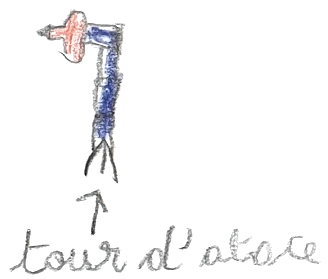 tour d'atace